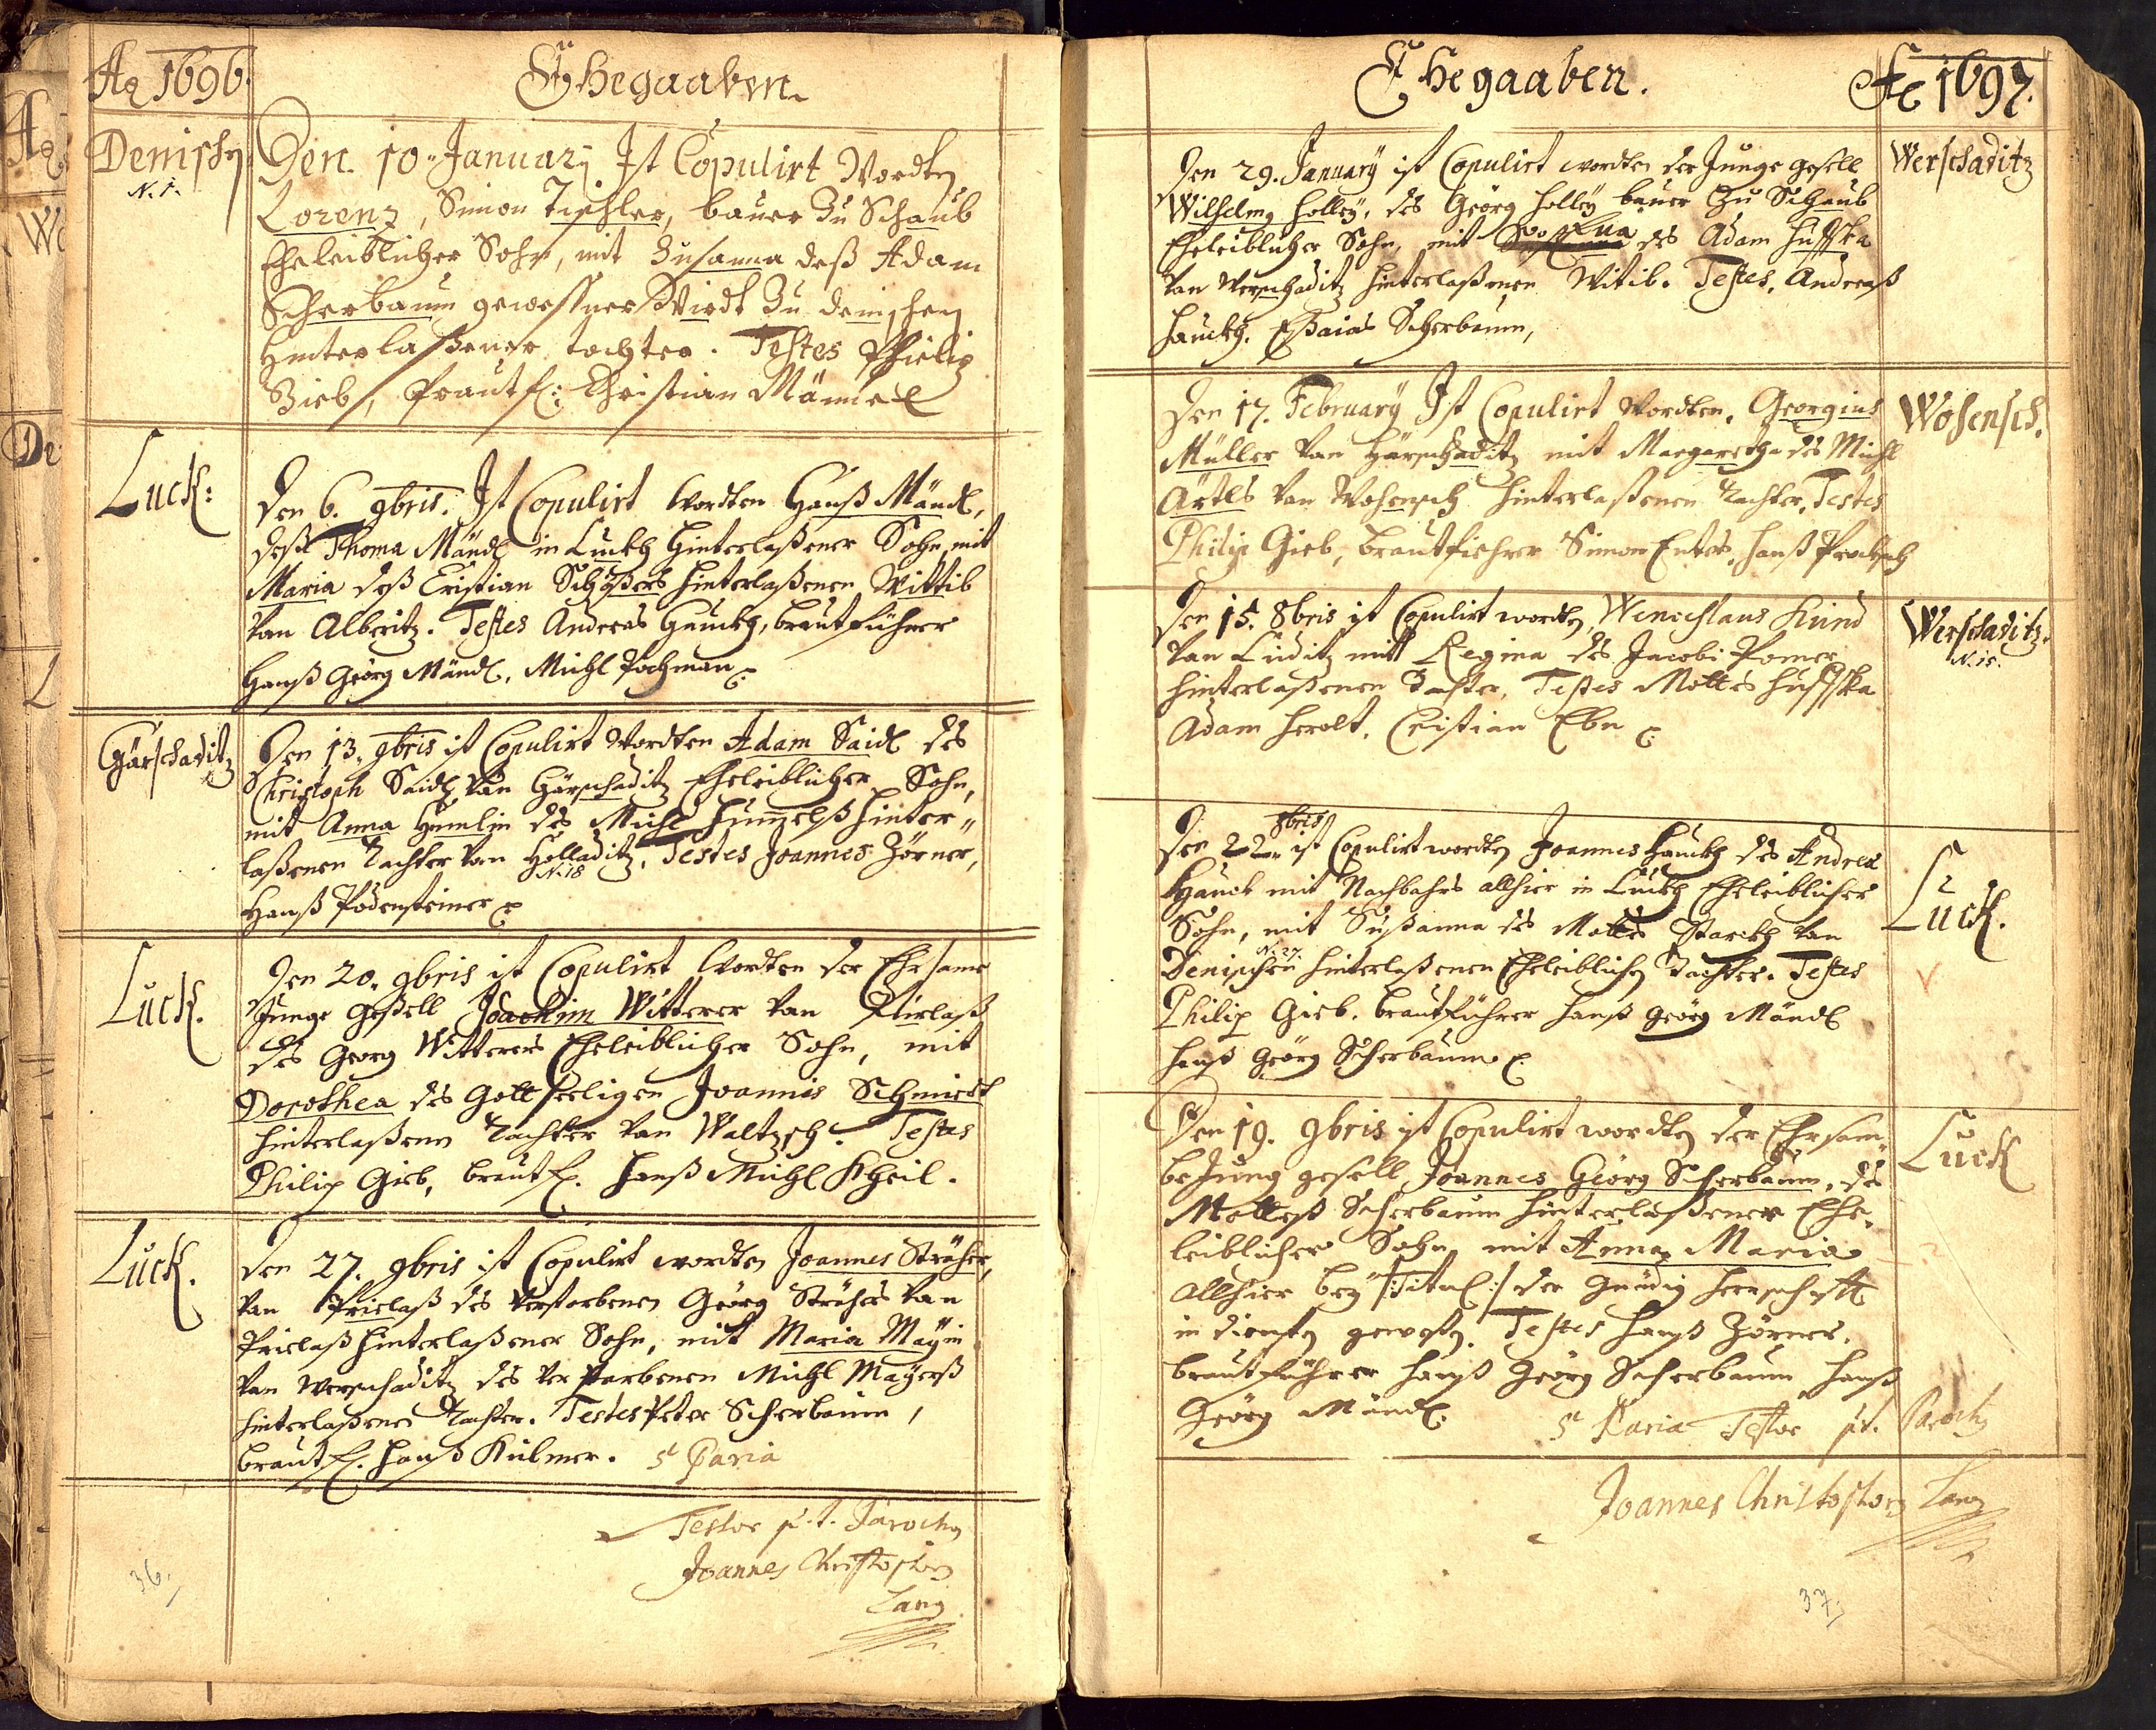 Aō 1696.
EHegaaben.
Denischn
N. 1.
Den. 10. January Ist Copulirt Wordten
Lorenz, Simon Tischler, bauer Zu Schaub
Eheleiblicher Sohn, mit Susanna deß Adam
Scherbaum gewessner Wirdt Zu denischen
Hinterlaßener tochter. Testes Phielip
Gieb, Prautf: Christian Mänd
Luck:
Den 6. 9bris. Ist Copulirt Wordten Hanß Mändl,
deß Thoma Mändl in Luckh Hinterlaßener Sohn, mit
Maria deß Cristian Schößers hinterlaßenen Wittib
Van Alberitz. Testes Andreas Hauckh, brautführer
Hanß Geörg Mändl, Michl Pochman
Gärschaditz
Den 13. 9bris ist Copulirt Wordten Adam Saidl des
Christoph Saidl Van Gärschaditz Eheleiblicher Sohn,
mit Anna Humlin des Michl Hum̄elß Hinter-
laßenen Tachter Van Holladitz. Testes Joannes Zörner,
N. 18
Hanß Podensteiner
Luck.
Den 20. 9bris ist Copulirt Wordten der Ehrsame
Junge Gesell Joachim Witterer Van Pirlaß
des Georg Witterers Eheleiblicher Sohn, mit
Dorothea des Gottseeligen Joannis Schmiedt
hinterlaßenen Tachter Van Waltzsch. Testes
Philip Gieb, brautf. Hanß Michl Kheil.
Luck.
Den 27. 9bris ist Copulirt wordten Joannes Ströher,
Van Prielaß des Verstorbenen Geörg Ströhers Van
Prielaß Hinterlaßener Sohn, mit Maria Mayin
Van Werschaditz des Verstorbenen Michl Mayerß
hinterlaßenen Tachter. Testes Peter Scherbaum,
brautf. Hanß Külmer. 5 Paria
Testor p. t. Parochus
Joannes Christophorus
Lang
36.
EHegaaben.
Aō 1697.
Den 29. January ist Copulirt wordten der Junge gesell
Wilhelmg Holley, des Geörg Holley bauer Zu Schaub
Eheleiblicher Sohn, mit Eua des Adam Hussska
Van Werschaditz Hinterlaßenen Witib. Testes. Andreaß
Hauckh. Essaias Scherbaum,
Werschaditz
Den 17. February Ist Copulirt Wordten. Georgius
Müller Van Gärschaditz mit Margaretha des Michl
Ärtls Van Wohensch Hinterlaßenen Tachter. Testes
Philip Gieb, brautfiehrer Simon Enters, Hanß Prockhsch
Wosensch.
Den 15. 8bris ist Copulirt wordten, Wenceslaus Kund
Van Luditz mit Regina des Jacobi Pomer
hinterlaßenen Tachter, Testes Mottes Hussska
Adam Herolt. Cristian Ebn
Werschaditz.
N. 15.
8bris
Den 22ten ist Copulirt wordten Joannes Hauckh des Andrea
Hauck mit Nachbahrs allhier in Luckh Eheleiblicher
Sohn, mit Sußanna des Mottes Starckh Van
N. 27.
Denischen hinterlaßenen Eheleiblichen Tachter. Testes
Philip Gieb. brautführer Hanß Geörg Mändl
Hanß Geörg Scherbaum.
Luck.
Den 19. 9bris ist Copulirt wordten der Ehrsam-
be Jung gesell Joannes Geörg Scherbaum, des
Motteß Scherbaum Hinterlaßener Ehe-
leiblicher Sohn mit Anna Maria
allhier bey /:Titul:/ der Gnädig Herrschafft
in diensten gewesen. Testes Hanß Zörner.
brautführer Hanß Geörg Scherbaum Hanß
Geörg Mändl.
Luck
5 Paria Testor p.t. Parochus
Joannes Christophorus Lang
37.